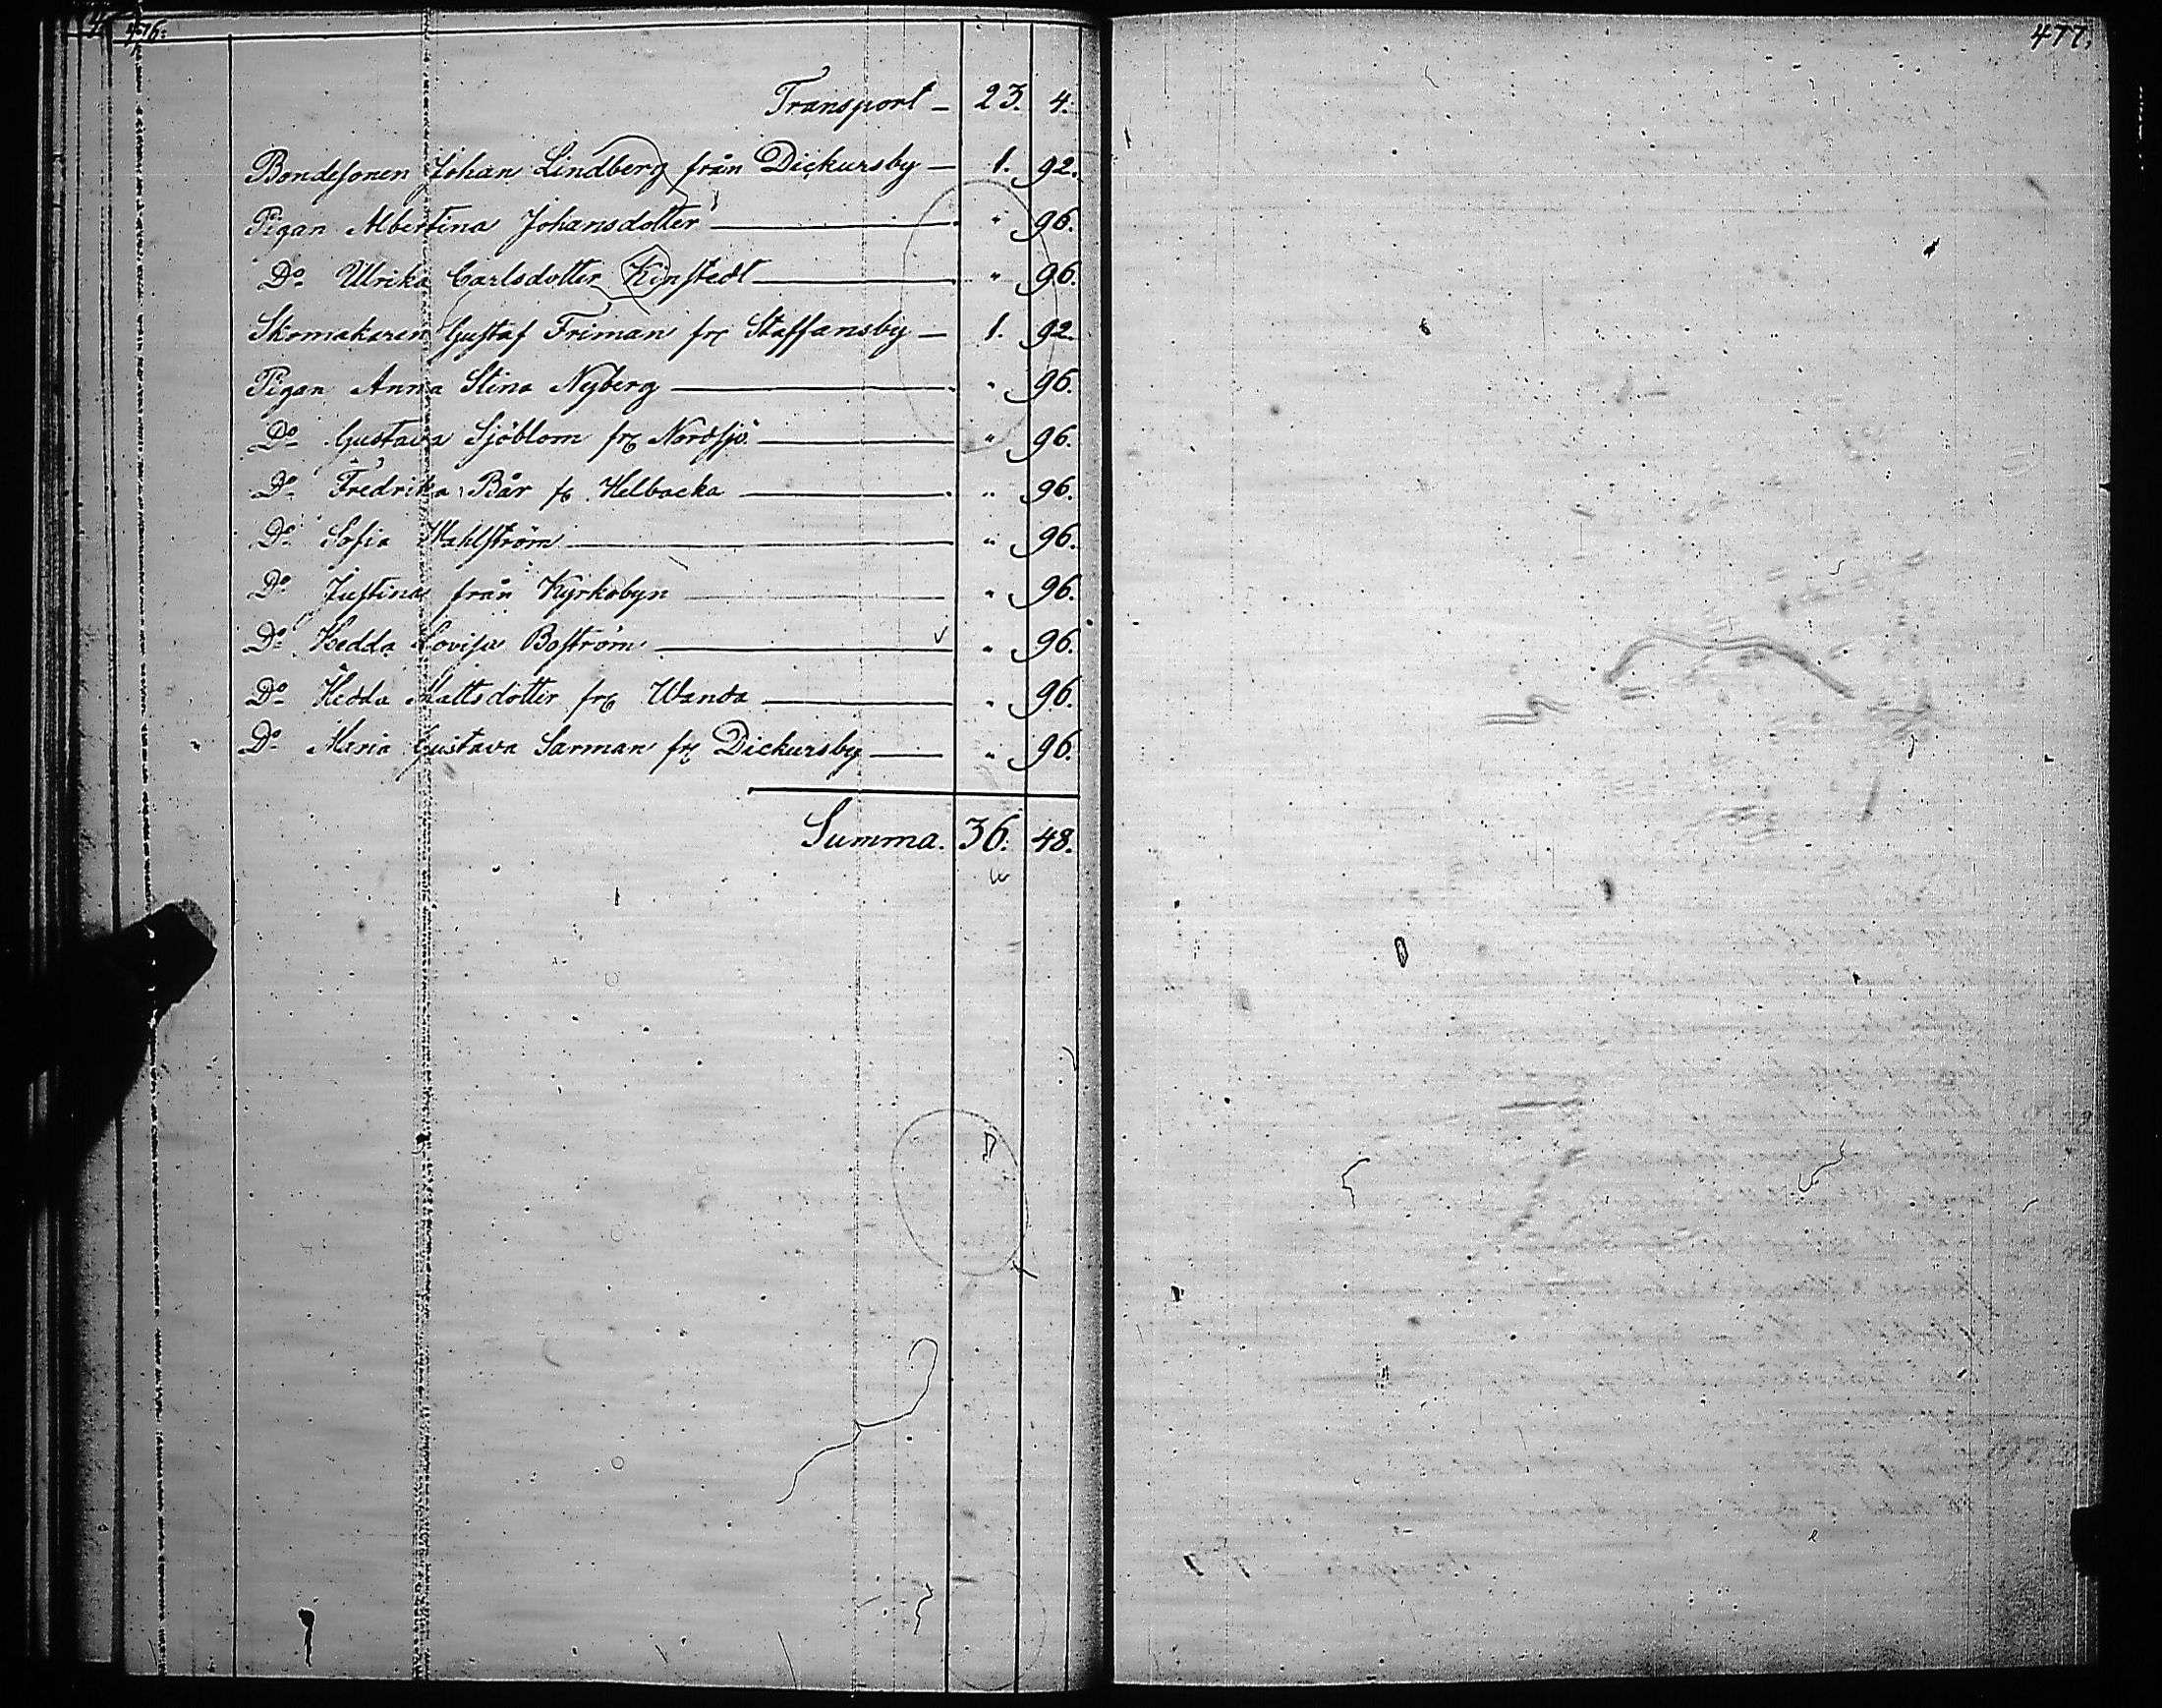 476.
Transport — 23. 4.
Bondesonen Johan Lindberg från Dickursby — 1. 92.
Pigan Albertina Johansdotter — " 96.
Do Ulrika Carlsdotter Kinstedt — " 96.
Skomakaren Gustaf Friman fr Staffansby — 1. 92.
Pigan Anna Stina Nyberg — " 96.
Do Gustava Sjöblom fr Nordsjö — " 96.
Do Fredrika Bår fr Helbacka — " 96.
Do Sofia Wahlström — " 96.
Do Justina från Kyrkobyn — " 96.
Do Hedda Lovisa Boström — " 96.
Do Hedda Mattsdotter fr Wanda — " 96.
Do Maria Gustava Sarman fr Dickursby — " 96.
Summa. 36. 48.
477.